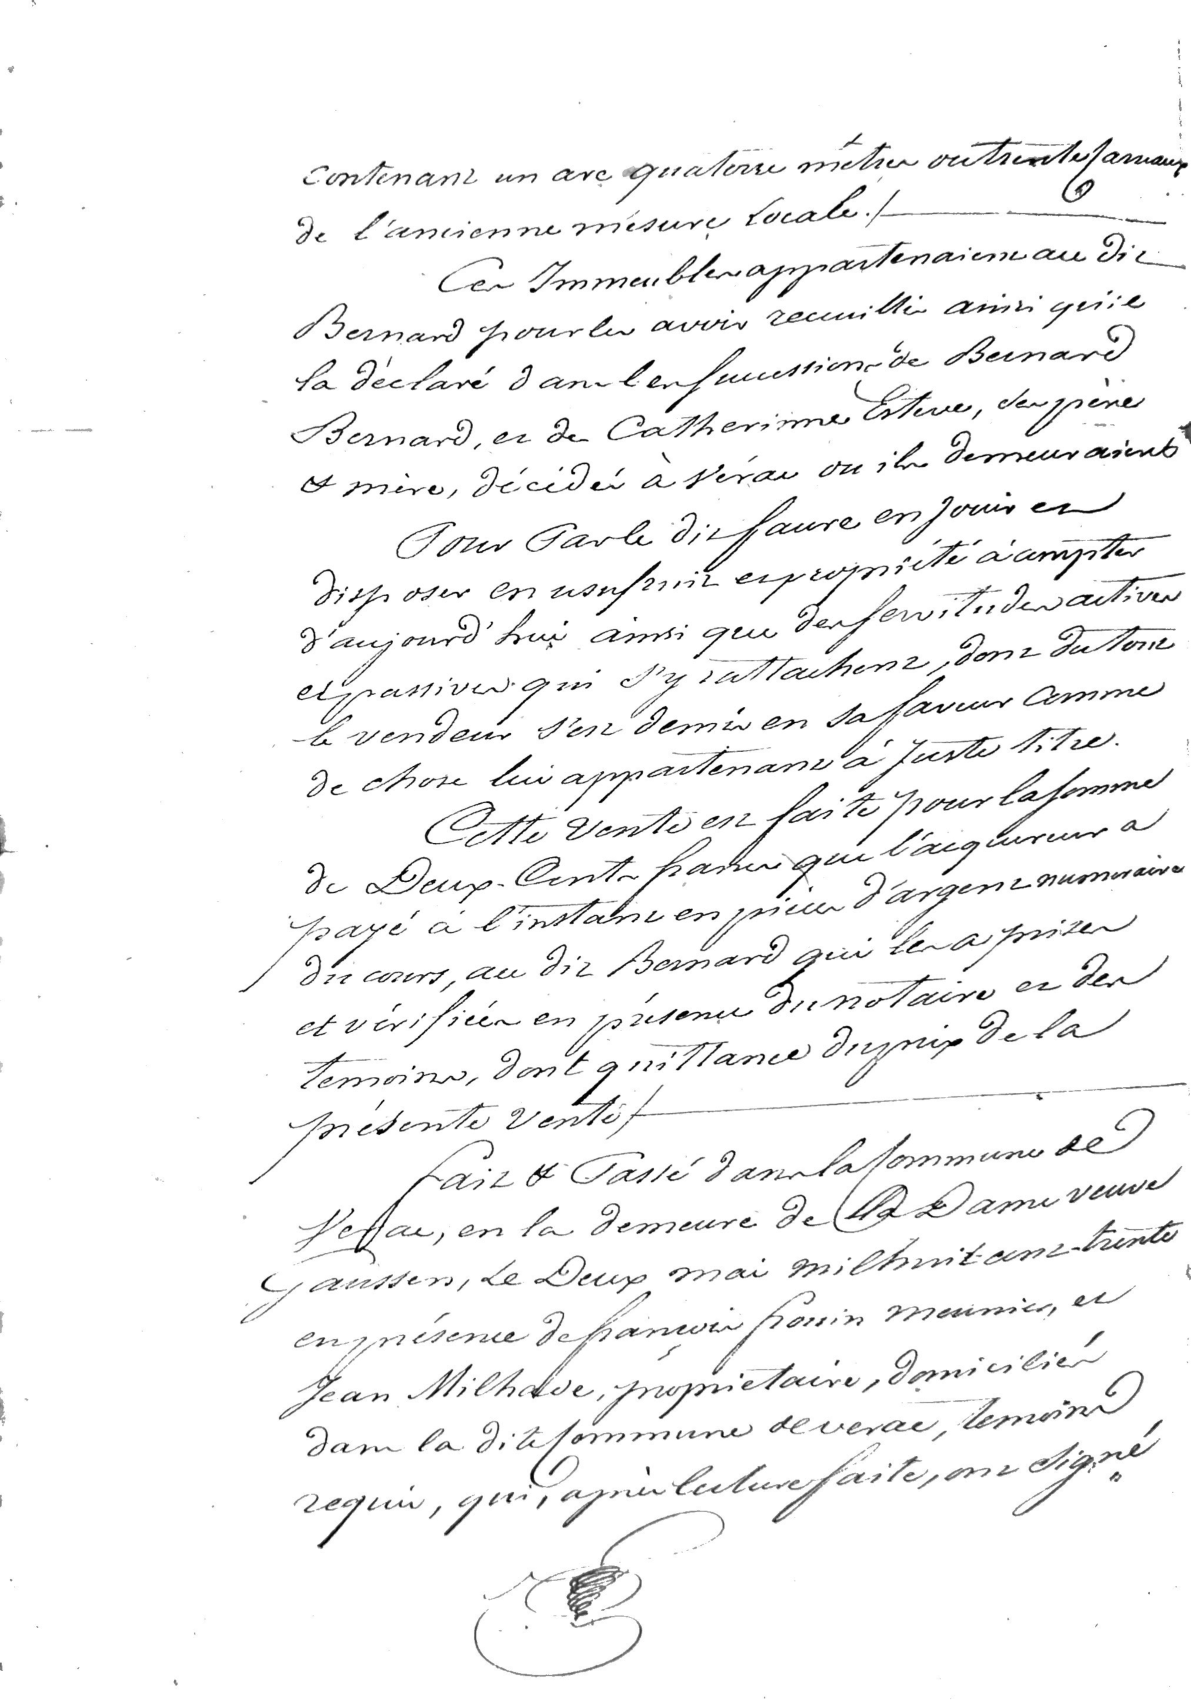 contenant un are quatorze mètres ou trente carreaux
de l'ancienne mésure Locale ./.
Ces Immeubles appartenaient au dit
Bernard pour les avoir recueillis ainsi qu'il
la déclaré dans les successions de Bernard
Bernard, et de Catherinne Esteve, ses père
& mère, décédés à Vérac ou ils demeuraient
Pour Par le dit faure en Jouir et
disposer en usufruit et propriété à compter
d'aujourd'hui ainsi que des servitudes actives
et passives qui s'y rattachent, dont du tout
le vendeur s'est demis en sa faveur comme
de chose lui appartenant à juste titre.
Cette Vente est faite pour la somme
de Deux-Cents francs que l'acquereur a
payé à l'instant en pièces d'argent numeraire
du cours, au dit Bernard qui les a prises
et vérifiées en présence du notaire et des
temoins, dont quittance du prix de la
présente Vente /
Fait & Passé dans la Commune de
Verac, en la demeure de La Dame veuve
Gaussen, Le Deux mai mil huit cent-trente
en présence de françois frouin meunier, et
Jean Milhade, propriétaire, domiciliés
dans la dite Commune de verac, temoins
requis, qui, après lecture faite, ont signé